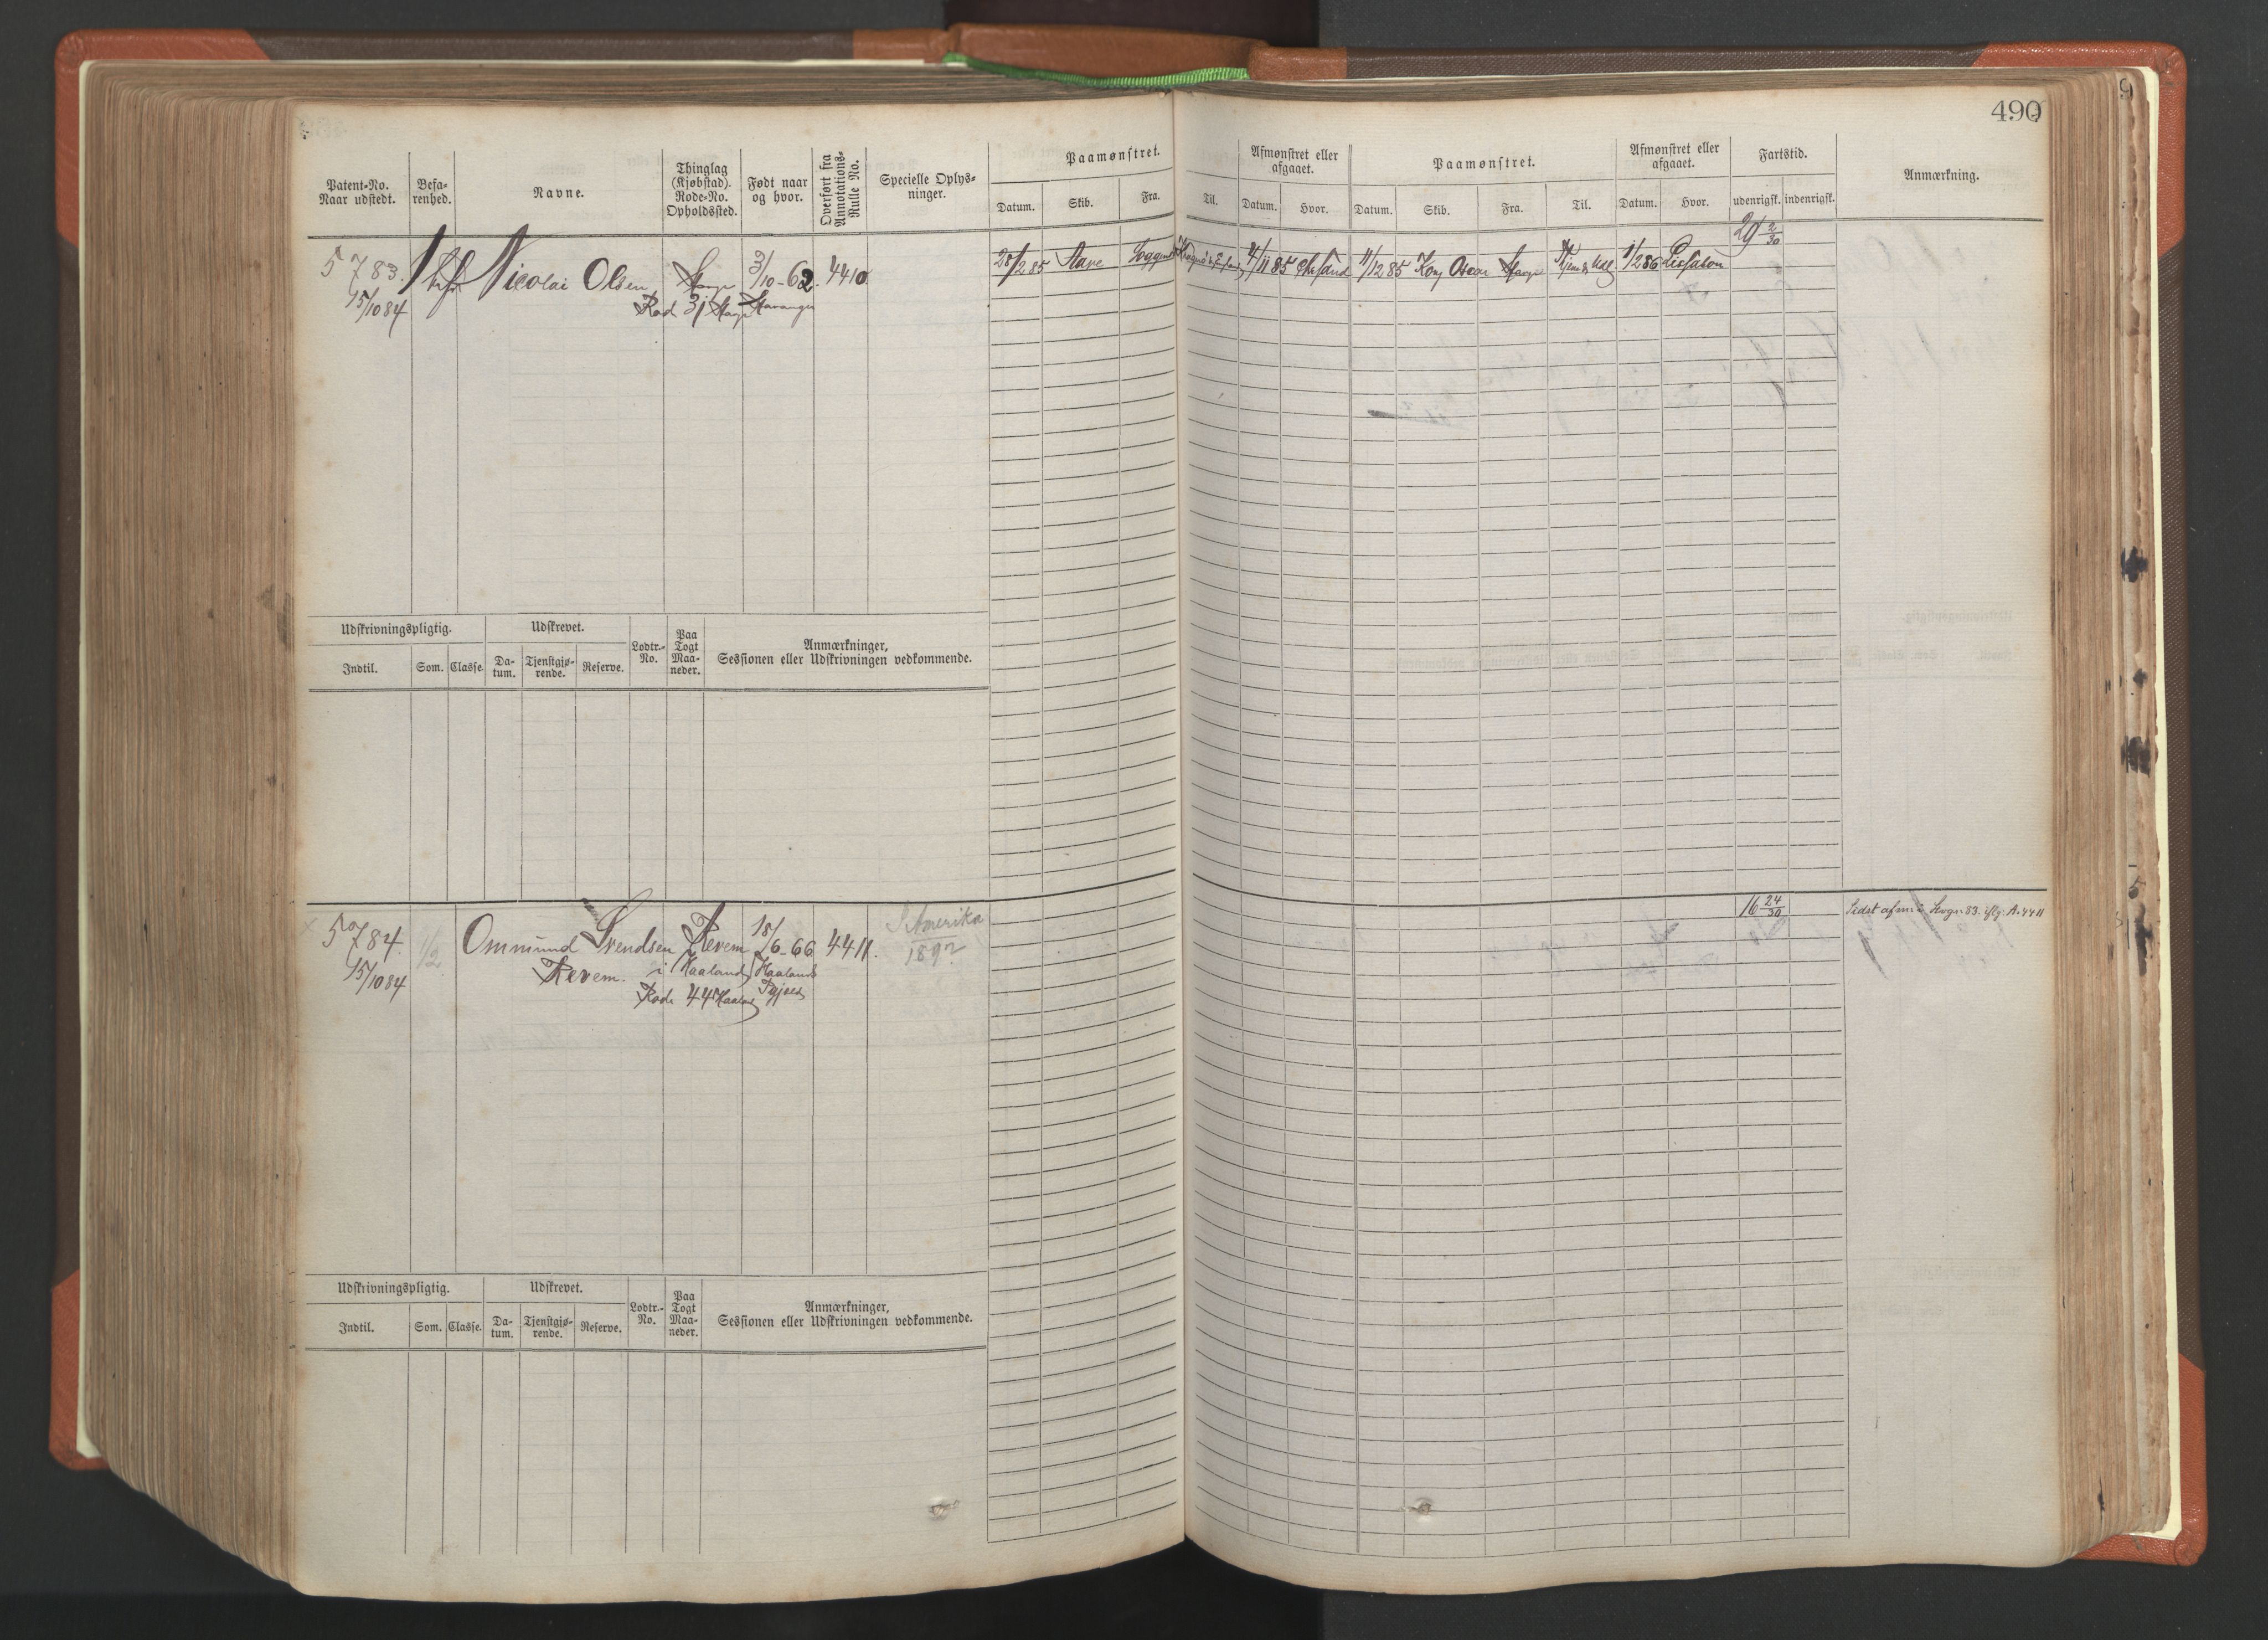 490
Patent-No. Naar udstedt. Befa-renhed. Navne. Thinglag (Kjøbstad). Rode-No. Opholdssted. Født naar og hvor. Overført fra Annotations-Rulle No. Specielle Oplys-ninger. Paamønstret. Afmønstret eller afgaaet. Paamønstret. Afmønstret eller afgaaet. Fartstid. Anmærkning.
Datum. Skib. Fra. Til. Datum. Hvor. Datum. Skib. Fra. Til. Datum. Hvor. udenrigsk. indenrigsk.
29 2/30
5783. Nicolai Olsen 3/10-62. 4410 28/2 85 4/11 85 11/12 85 Kong Oscar 1/2 86 Lissabon
15/10 84 Rod 31 Stavanger
Udskrivningspligtig. Udskrevet. Lodtr.-No. Paa Togt Maa-neder. Anmærkninger, Sessionen eller Udskrivningen vedkommende.
Indtil. Som. Classe. Da-tum. Tjenstgjø-rende. Reserve.
5784. 1/2 Ommund Svendsen Revem 18/6-66 4411. Amerika 16 24/30 Sidst afm. i A. 4411
15/10 84 Revem. i Haaland Haaland 189?
Rode 44 Haaland
Udskrivningspligtig. Udskrevet. Lodtr.-No. Paa Togt Maa-neder. Anmærkninger, Sessionen eller Udskrivningen vedkommende.
Indtil. Som. Classe. Da-tum. Tjenstgjø-rende. Reserve.